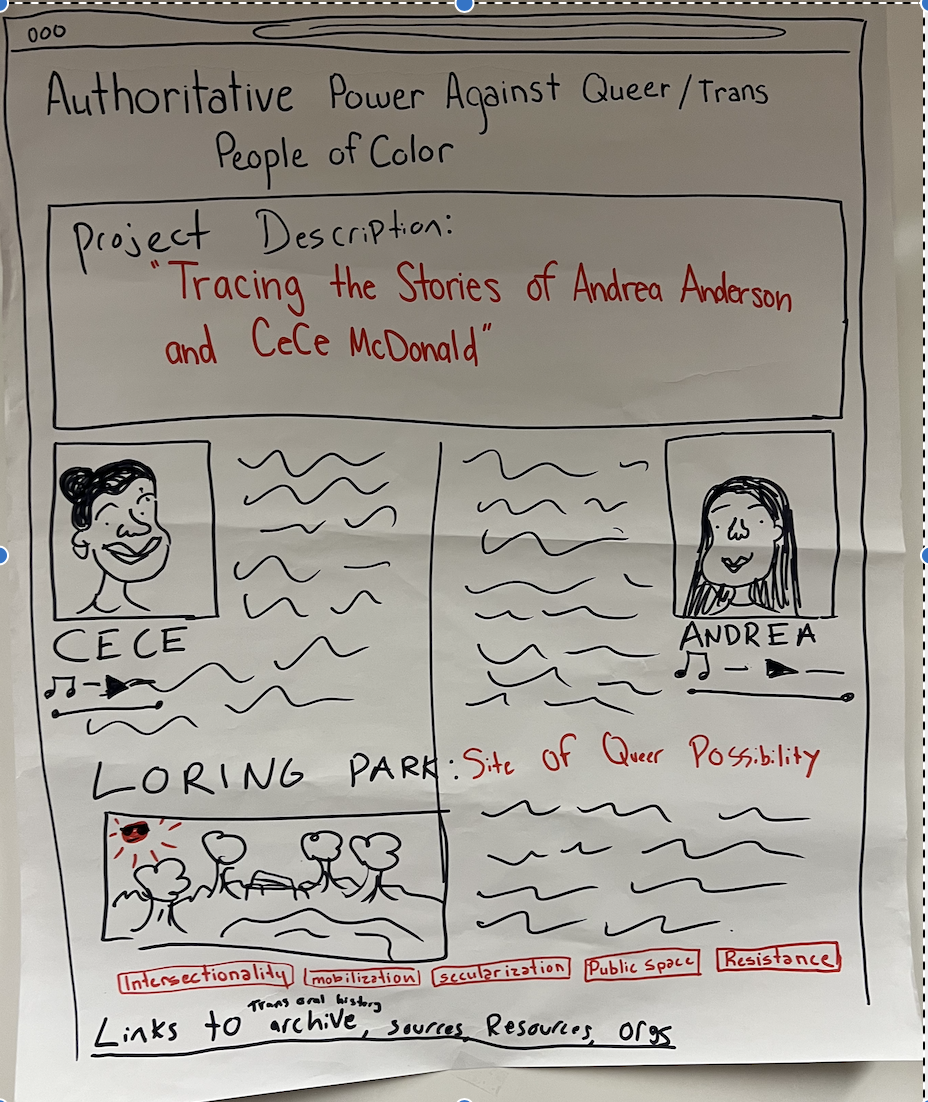 000
Authoritative Power Against Queer/Trans
People of Color
Project Description:
"Tracing the Stories of Andrea Anderson
and CeCe McDonald"
CECE
ANDREA
LORING PARK: Site of Queer Possibility
Intersectionality mobilization secularization Public Space Resistance
Trans oral history
Links to archive, sources, Resources, orgs